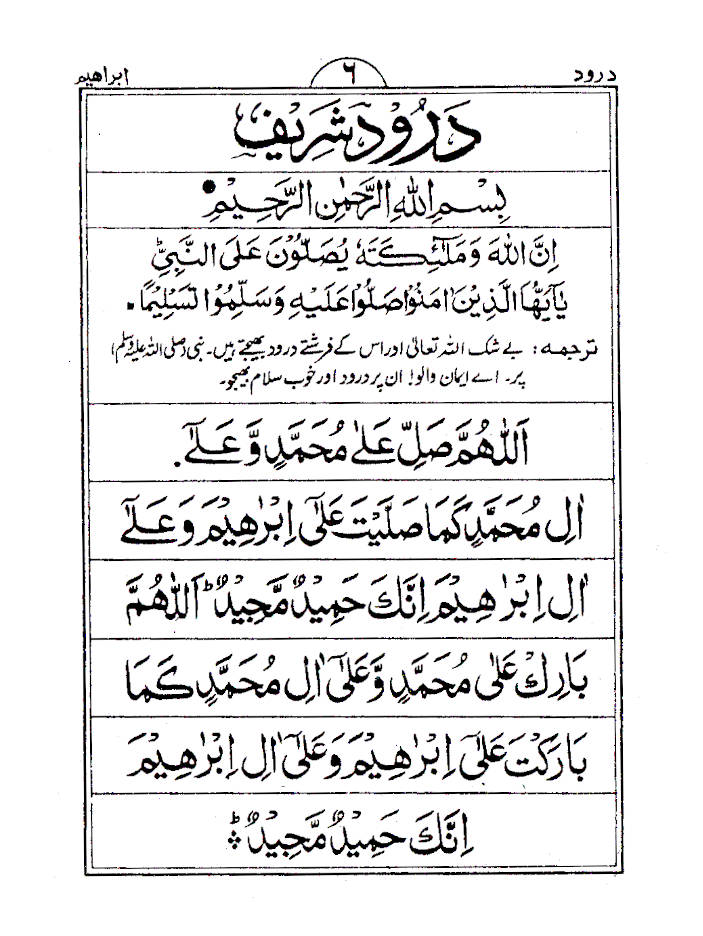 درود
٦
ابراهیم
دَرُوْد شَرِیْف
بِسْمِ اللهِ الرَّحْمٰنِ الرَّحِیْمِ
اِنَّ اللهَ وَمَلٰٓئِكَتَهٗ یُصَلُّوْنَ عَلَی النَّبِیِّ ؕ
یٰۤاَیُّهَا الَّذِیْنَ اٰمَنُوْا صَلُّوْا عَلَیْهِ وَسَلِّمُوْا تَسْلِیْمًا۔
ترجمہ: بے شک اللہ تعالیٰ اور اس کے فرشتے درود بھیجتے ہیں۔ نبی (صلی اللہ علیہ وسلم)
پر۔ اے ایمان والو! ان پر درود اور خوب سلام بھیجو۔
اَللّٰهُمَّ صَلِّ عَلٰی مُحَمَّدٍ وَّعَلٰۤی
اٰلِ مُحَمَّدٍ كَمَا صَلَّیْتَ عَلٰۤی اِبْرٰهِیْمَ وَعَلٰۤی
اٰلِ اِبْرٰهِیْمَ اِنَّكَ حَمِیْدٌ مَّجِیْدٌ ؕ اَللّٰهُمَّ
بَارِكْ عَلٰی مُحَمَّدٍ وَّعَلٰۤی اٰلِ مُحَمَّدٍ كَمَا
بَارَكْتَ عَلٰۤی اِبْرٰهِیْمَ وَعَلٰۤی اٰلِ اِبْرٰهِیْمَ
اِنَّكَ حَمِیْدٌ مَّجِیْدٌ ؕ